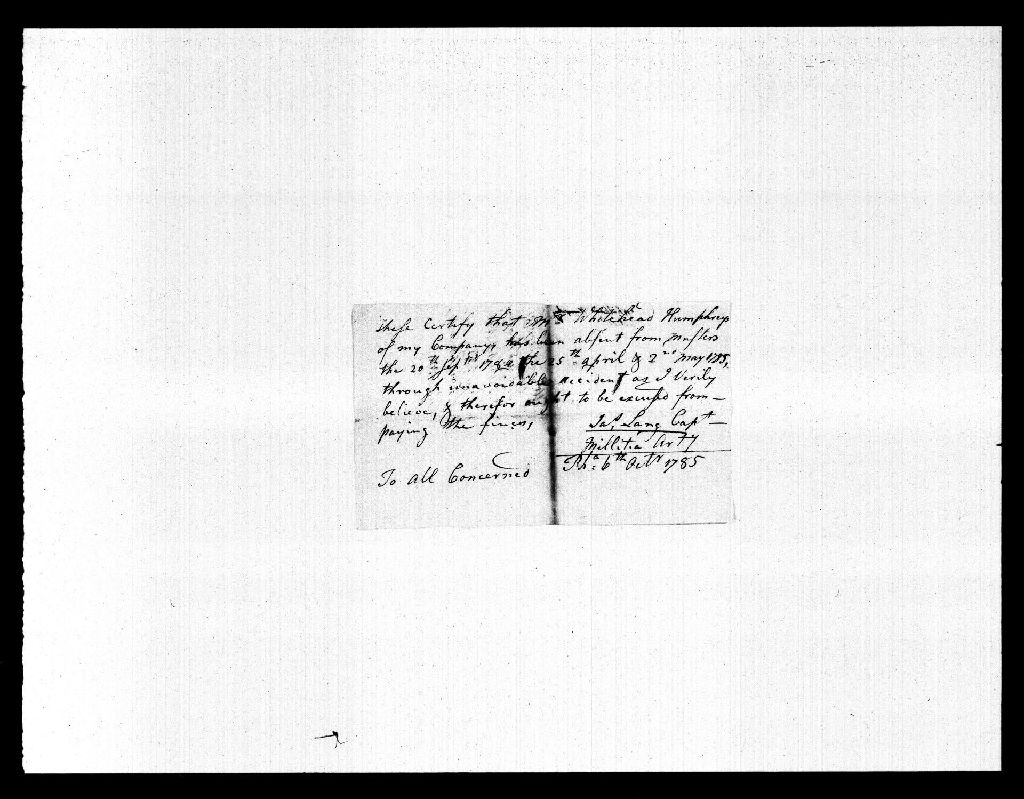 these Certify that Whitehead Humphreys
of my Company, has been absent from musters
the 20th Sepr 1784 the 25th april & 2nd may 1785,
through unavoidable accident as I Verily
believe, & therefor ought to be excused from —
paying the fines,
Jas Lang Capt —
Millitia Arty
To all Concerned
Pha: 6th Octr 1785